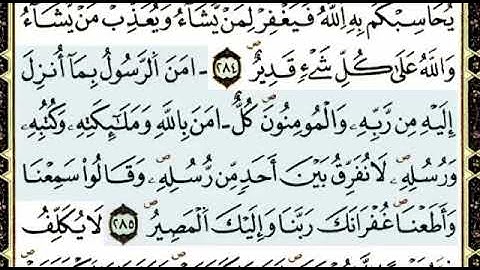 يُحَاسِبْكُم بِهِ اِللَّهُ فَيَغْفِرْ لِمَنْ يَّشَآءُ وَيُعَذِّب مَّنْ يَّشَآءُ
وَاللَّهُ عَلَىٰ كُلِّ شَےْءٖ قَدِيرٌ ٢٨٤ ءَامَنَ اَلرَّسُولُ بِمَآ أُنزِلَ
إِلَيْهِ مِن رَّبِّهِۦ وَالْمُومِنُونَ كُلٌّ ـ اٰمَنَ بِاللَّهِ وَمَلَٰٓئِكَتِهِۦ وَكُتُبِهِۦ
وَرُسُلِهِۦ لَا نُفَرِّقُ بَيْنَ أَحَدٖ مِّن رُّسُلِهِۦ وَقَالُواْ سَمِعْنَا
وَأَطَعْنَا غُفْرَانَكَ رَبَّنَا وَإِلَيْكَ اَلْمَصِيرُ ٢٨٥ لَا يُكَلِّفُ